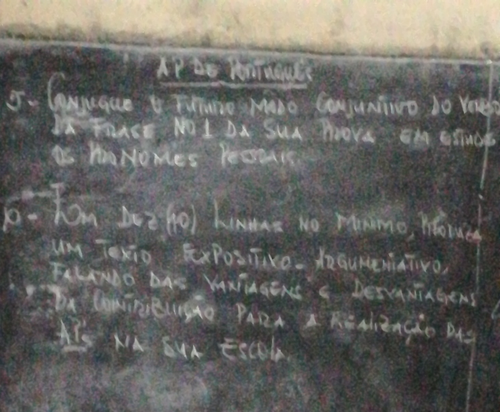 AP DE PORTUGUÊS
5- CONJUGUE O FUTURO MODO CONJUNTIVO DO VERBO
DA FRASE Nº 1 DA SUA PROVA EM
OS PRONOMES PESSOAIS.
10- EM DEZ (10) LINHAS NO MINIMO, PRODUZA
UM TEXTO EXPOSITIVO-ARGUMENTATIVO,
FALANDO DAS VANTAGENS E DESVANTAGENS
DA CONTRIBUIÇÃO PARA A REALIZAÇÃO DAS
AP's NA SUA ESCOLA.